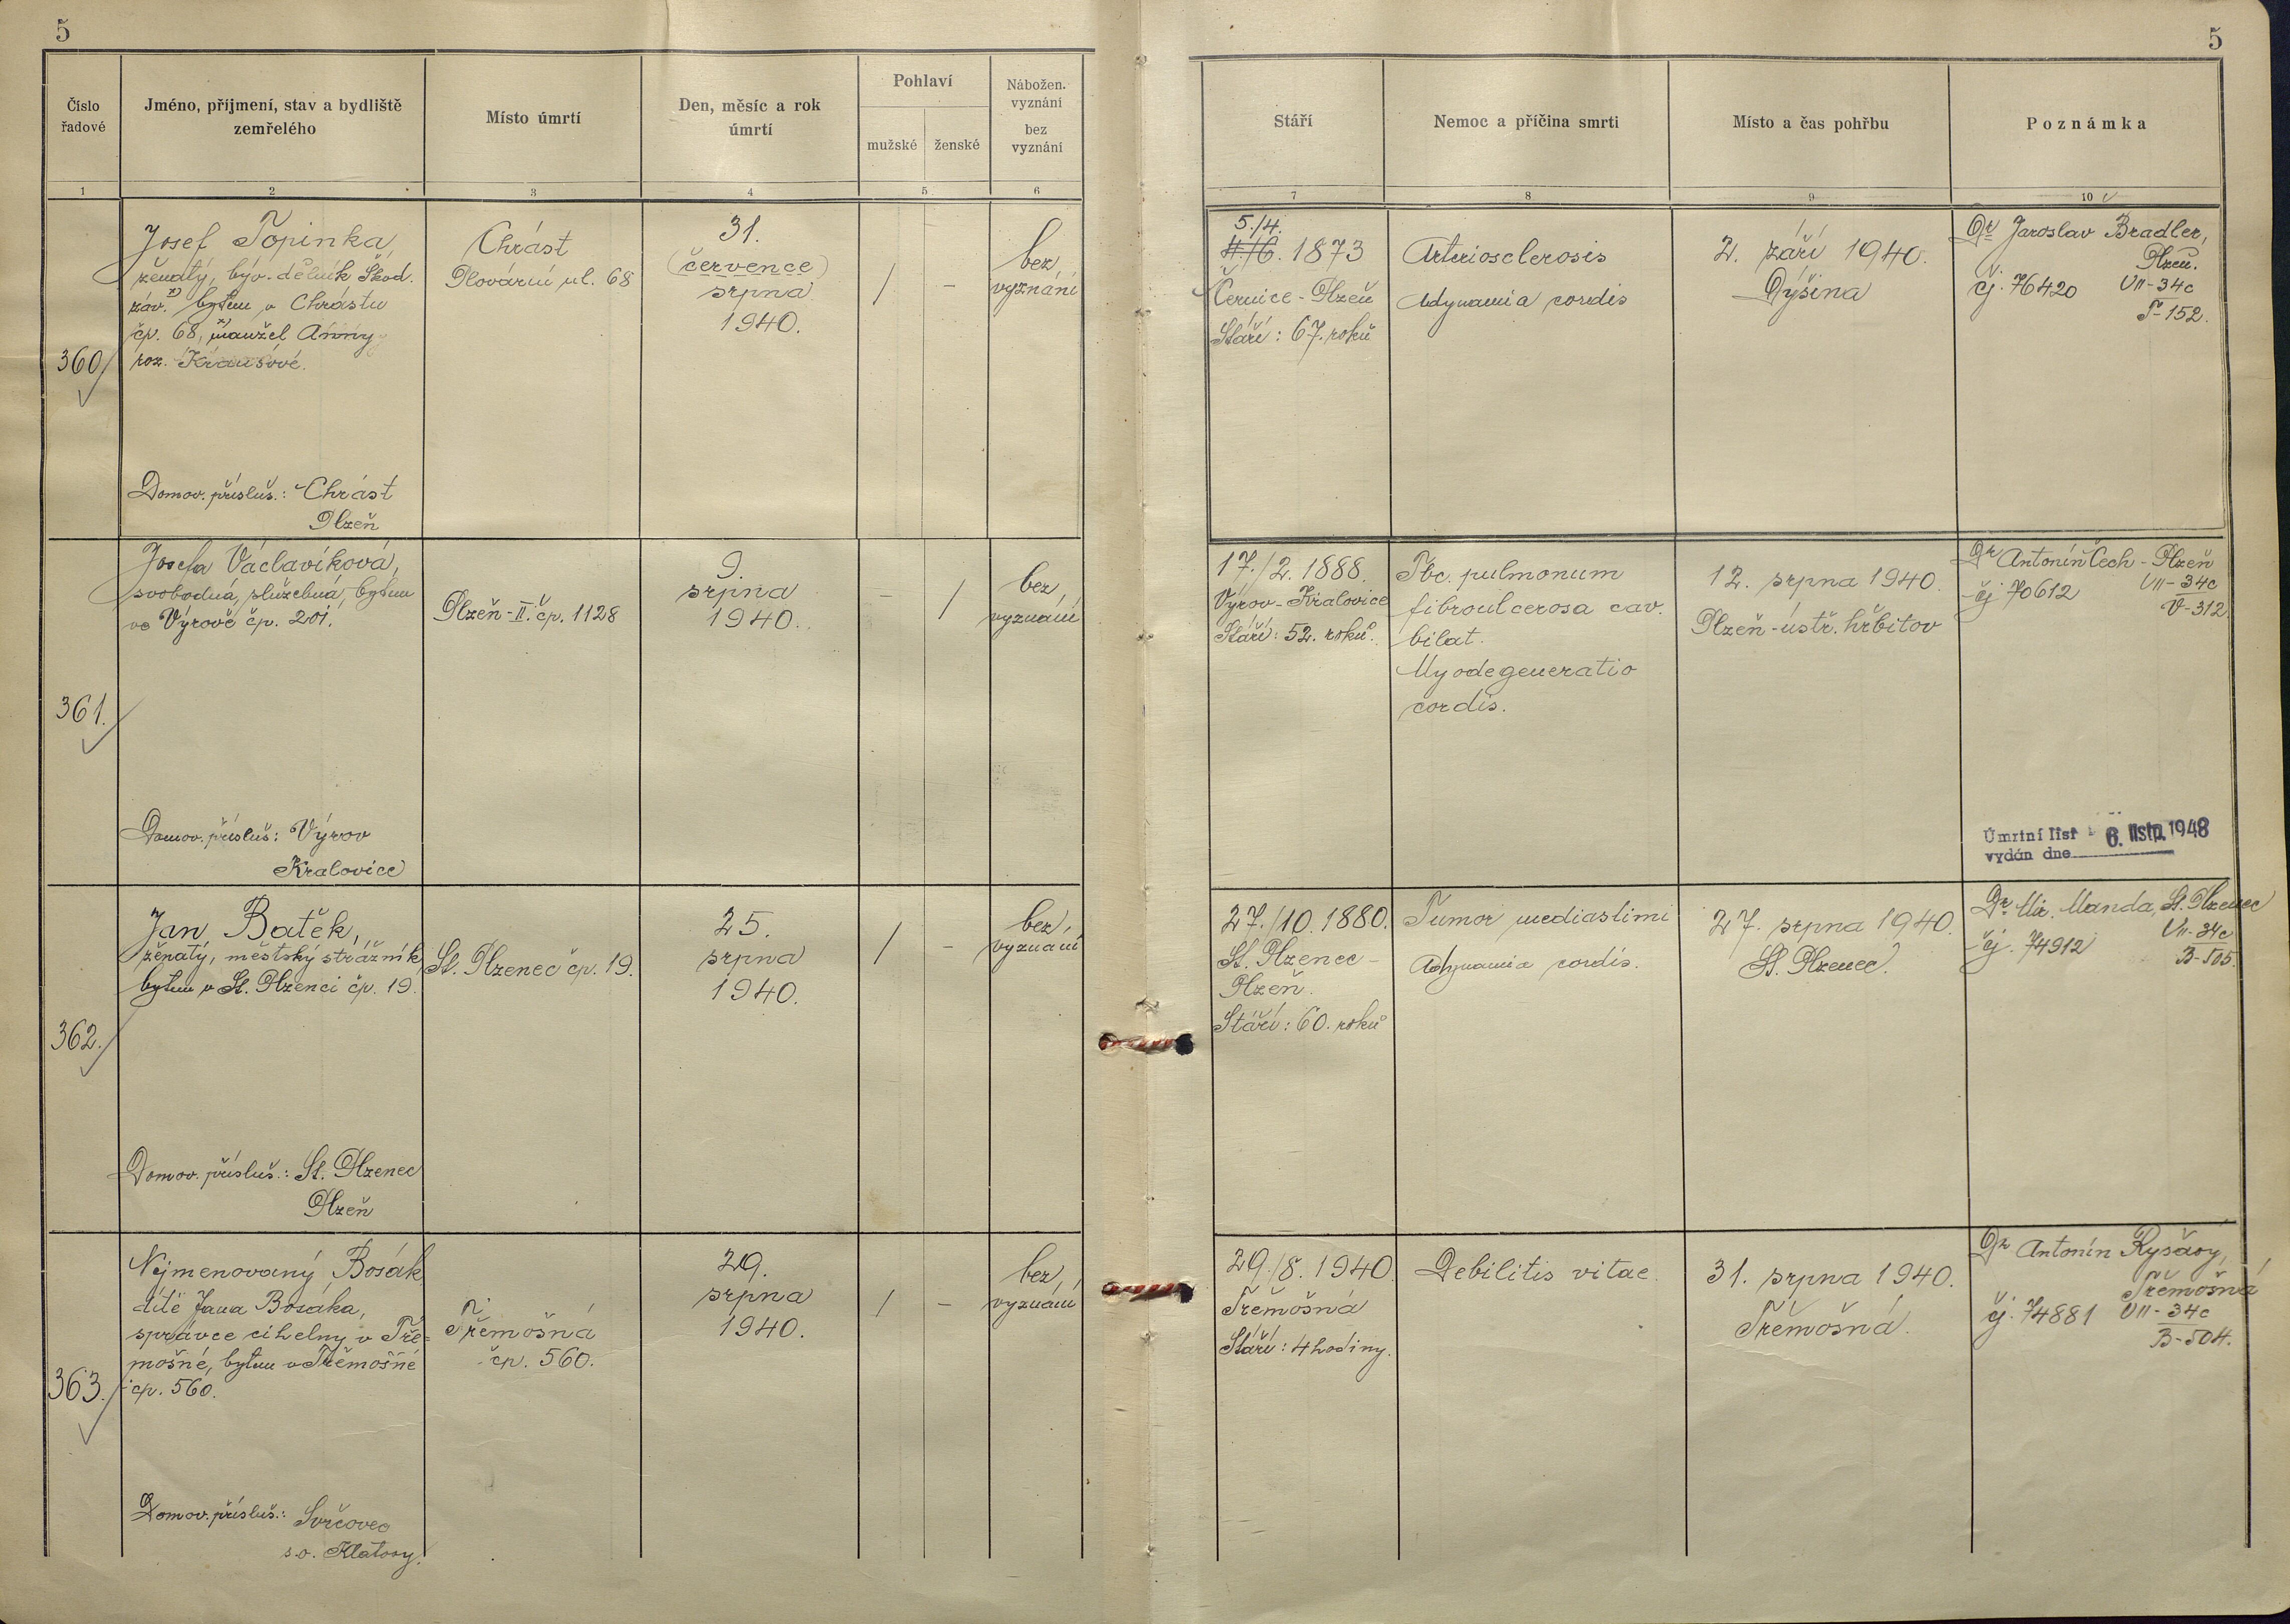 5
5
Číslo řadové
Jméno, příjmení, stav a bydliště zemřelého
Místo úmrtí
Den, měsíc a rok úmrtí
Pohlaví
mužské
ženské
Nábožen. vyznání
bez vyznání
Stáří
Nemoc a příčina smrti
Místo a čas pohřbu
Poznámka
1
2
3
4
5
6
7
8
9
10
360
Josef Topinka,
ženatý, býv. dělník Škod.
záv. x) bytem v Chrástu
čp. 68, x) manžel Anny
roz. Krausové.
Domov. přísluš.: Chrást
Plzeň
Chrást
Plovární ul. 68
31.
(července)
srpna
1940.
/
-
bez
vyznání
5./4.
1873
Černice - Plzeň
Stáří: 67. roků
Arteriosclerosis
Adynamia cordis
2. září 1940.
Dýšina
Dr Jaroslav Bradler,
Plzeň.
čj. 76420 VII-34c
T-152.
361.
Josefa Václavíková,
svobodná, služebná, bytem
ve Výrově čp. 201.
Domov. přísluš.: Výrov
Kralovice
Plzeň-II. čp. 1128
9.
srpna
1940.
-
/
bez
vyznání
17./2. 1888.
Výrov - Kralovice
Stáří: 52. roků.
Tbc. pulmonum
fibroulcerosa cav.
bilat.
Myodegeneratio
cordis.
12. srpna 1940.
Plzeň - ústř. hřbitov
Dr Antonín Čech - Plzeň
čj 70612 VII-34c
V-312
Úmrtní list 6. listp. 1948
vydán dne
362.
Jan Batěk,
ženatý, městský strážník,
bytem v St. Plzenci čp. 19.
Domov. přísluš.: St. Plzenec
Plzeň
St. Plzenec čp. 19.
25.
srpna
1940.
/
-
bez
vyznání
27./10. 1880.
St. Plzenec -
Plzeň.
Stáří: 60. roků
Tumor mediastini
Adynamia cordis.
27. srpna 1940.
St. Plzenec.
Dr. Mir. Manda, St. Plzenec
čj. 74912 VII-34c
B-505.
363.
Nejmenovaný Bosák
dítě Jana Bosáka,
správce cihelny v Tře=
mošné, bytem v Třemošné
čp. 560.
Domov. přísluš.: Svrčovec
s.o. Klatovy.
Třemošná
čp. 560.
29.
srpna
1940.
/
-
bez
vyznání
29./8. 1940
Třemošná
Stáří: 4 hodiny.
Debilitis vitae.
31. srpna 1940.
Třemošná.
Dr Antonín Ryšavý,
Třemošná
čj. 74881 VII-34c
B-504.